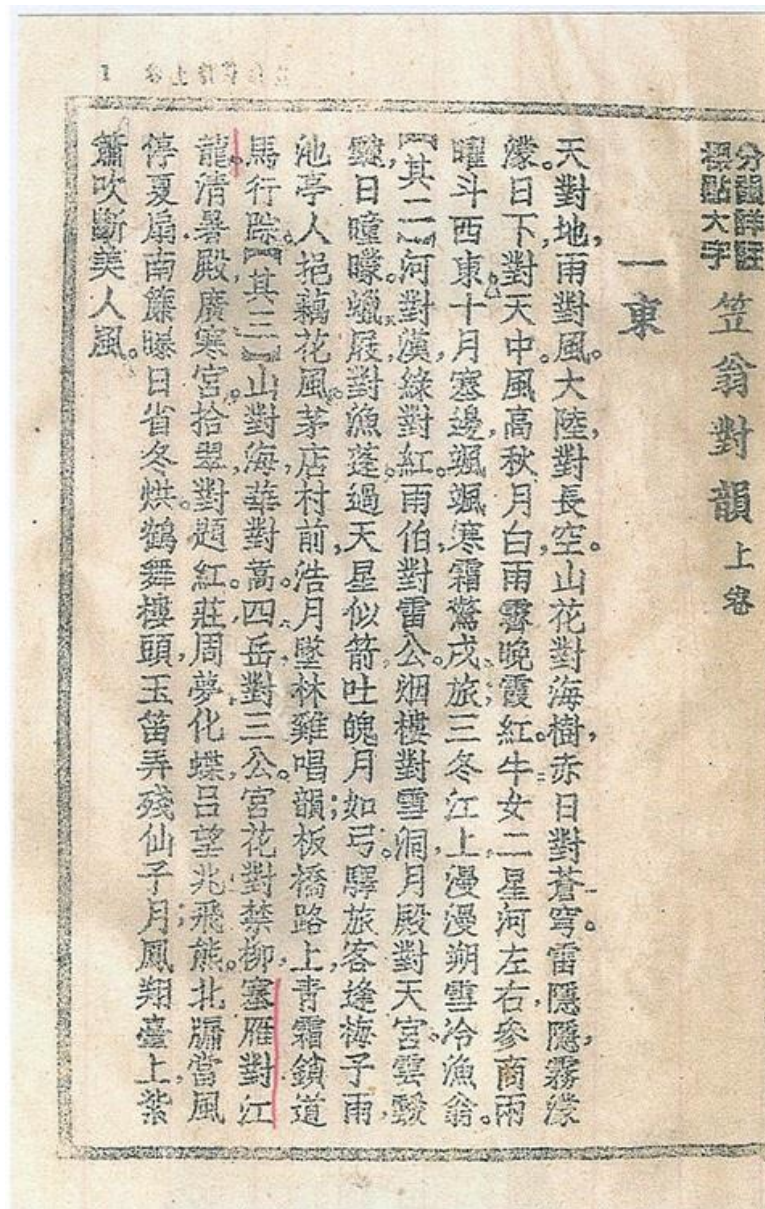 分韻詳註
標點大字
笠翁對韻 上卷
一東
天對地，雨對風。大陸對長空。山花對海樹，赤日對蒼穹。雷隱隱，霧濛
濛。日下對天中。風高秋月白，雨霽晚霞紅。牛女二星河左右，參商兩
曜斗西東。十月塞邊，颯颯寒霜驚戍旅；三冬江上，漫漫朔雪冷漁翁。
【其二】河對漢，綠對紅。雨伯對雷公。烟樓對雪洞，月殿對天宮。雲靉
靆，日曈曚。蠟屐對漁蓬。過天星似箭，吐魄月如弓。驛旅客逢梅子雨，
池亭人挹藕花風。茅店村前，浩月墜林雞唱韻；板橋路上，青霜鎖道
馬行踪。【其三】山對海，華對嵩。四岳對三公。宮花對禁柳，塞雁對江
龍。清暑殿，廣寒宮。拾翠對題紅。莊周夢化蝶，呂望兆飛熊。北牖當風
停夏扇，南簾曝日省冬烘。鶴舞樓頭，玉笛弄殘仙子月；鳳翔臺上，紫
簫吹斷美人風。